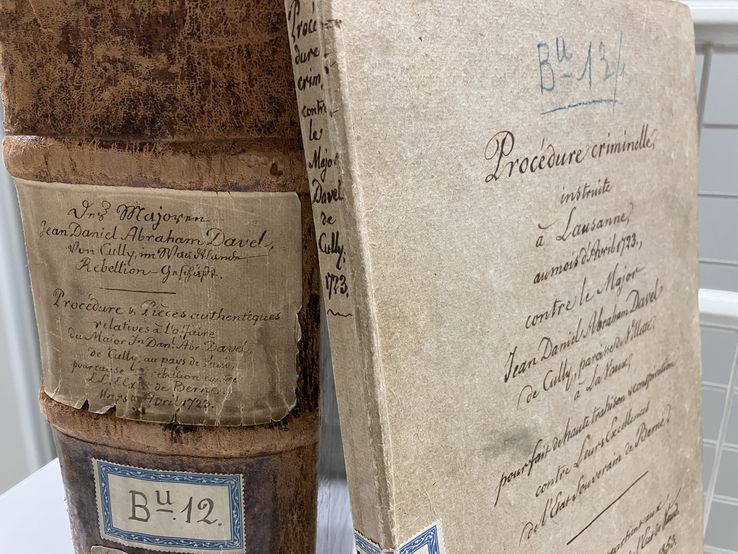 Des Majoren
Jean Daniel Abraham Davel,
von Cully, im Waadtlande
Rebellion-Geschäft.
Procédure & Pièces authentiques
relatives à l'affaire
du Major Jn Danl Abr Davel,
de Cully, au pays de Vaud,
pour cause de rébellion contre
LL. Exc. de Berne,
Mars & Avril 1723.
Bu. 12.
Procé-
dure
crim.
contre
le
Major
Davel
de
Cully,
1723.
Bu 13
Procédure criminelle,
instruite
à Lausanne,
au mois d'Avril 1723,
contre le Major
Jean Daniel Abraham Davel
de Cully, paroisse de Villette,
à La Vaux,
pour fait de haute trahison & conspiration
contre Leurs Excellences
de l'Etat Souverain de Berne.